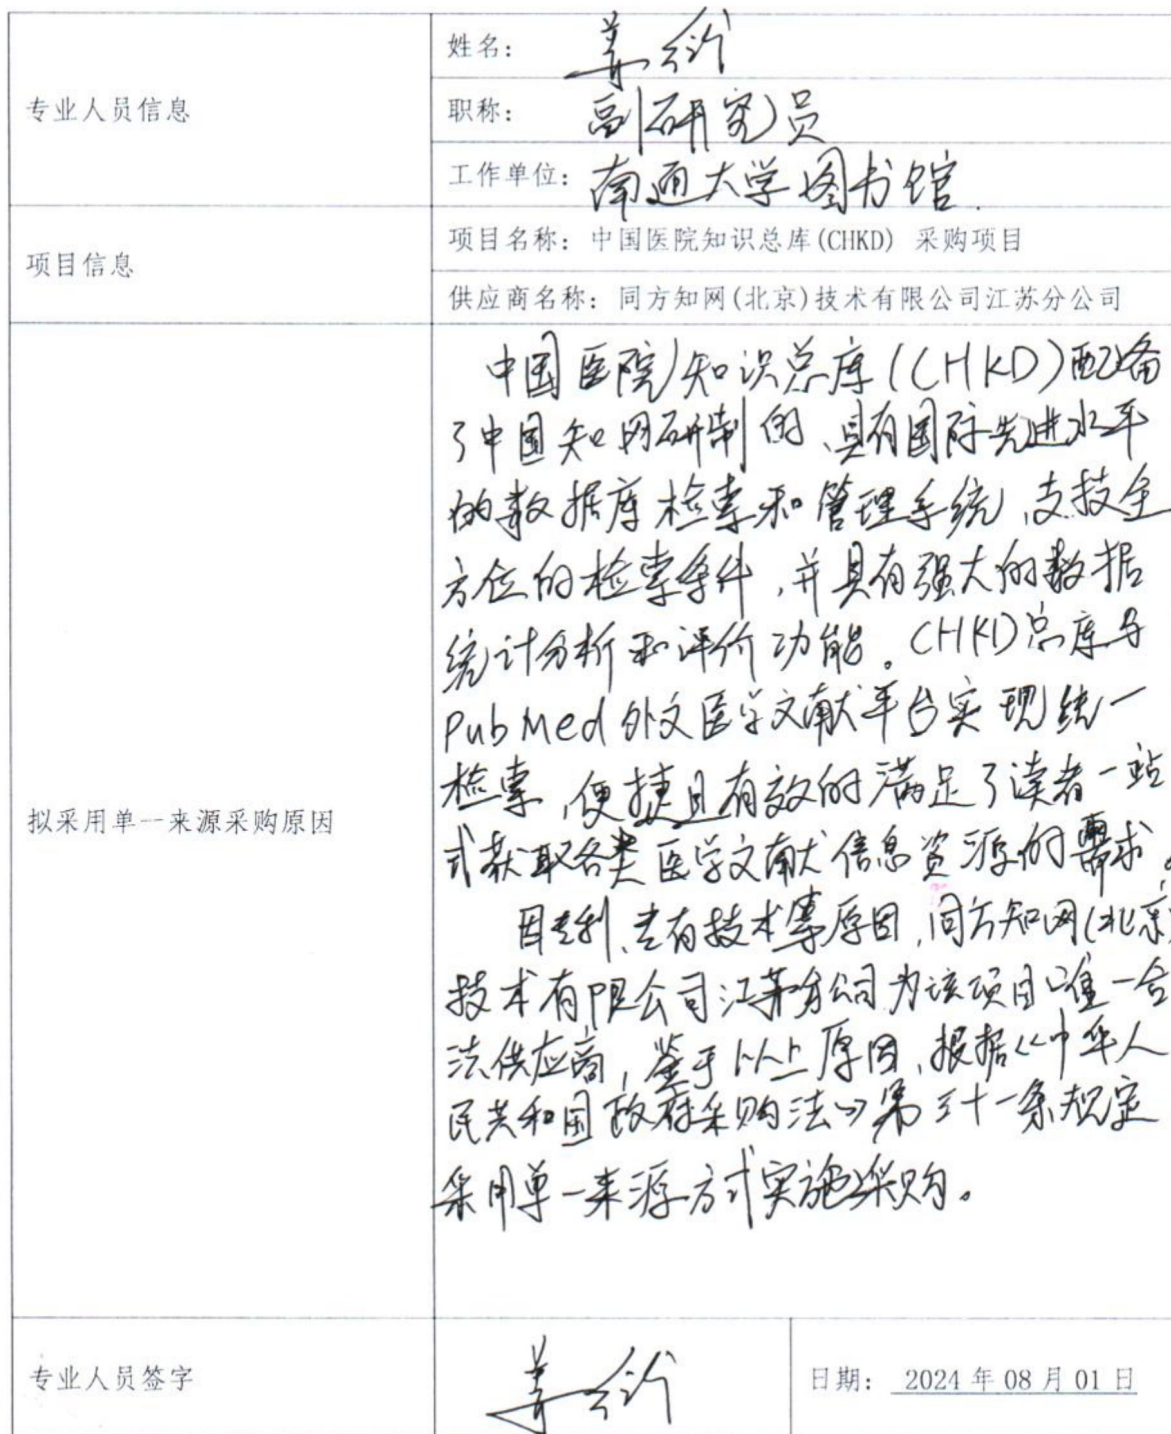 专业人员信息
姓名：姜
职称：副研究员
工作单位：南通大学图书馆
项目信息
项目名称：中国医院知识总库(CHKD) 采购项目
供应商名称：同方知网(北京)技术有限公司江苏分公司
拟采用单一来源采购原因
中国医院知识总库(CHKD)配备
了中国知网研制的、具有国际先进水平
的数据库检索和管理系统,支技全
方位的检索条件,并具有强大的数据
统计分析和评价功能。CHKD总库与
PubMed外文医学文献平台实现统一
检索,便捷且有效的满足了读者一站
式获取各类医学文献信息资源的需求。
因专利、专有技术等原因,同方知网(北京)
技术有限公司江苏分公司为该项目唯一合
法供应商,鉴于以上原因,根据《中华人
民共和国政府采购法》第三十一条规定
采用单一来源方式实施采购。
专业人员签字
姜
日期：2024年08月01日